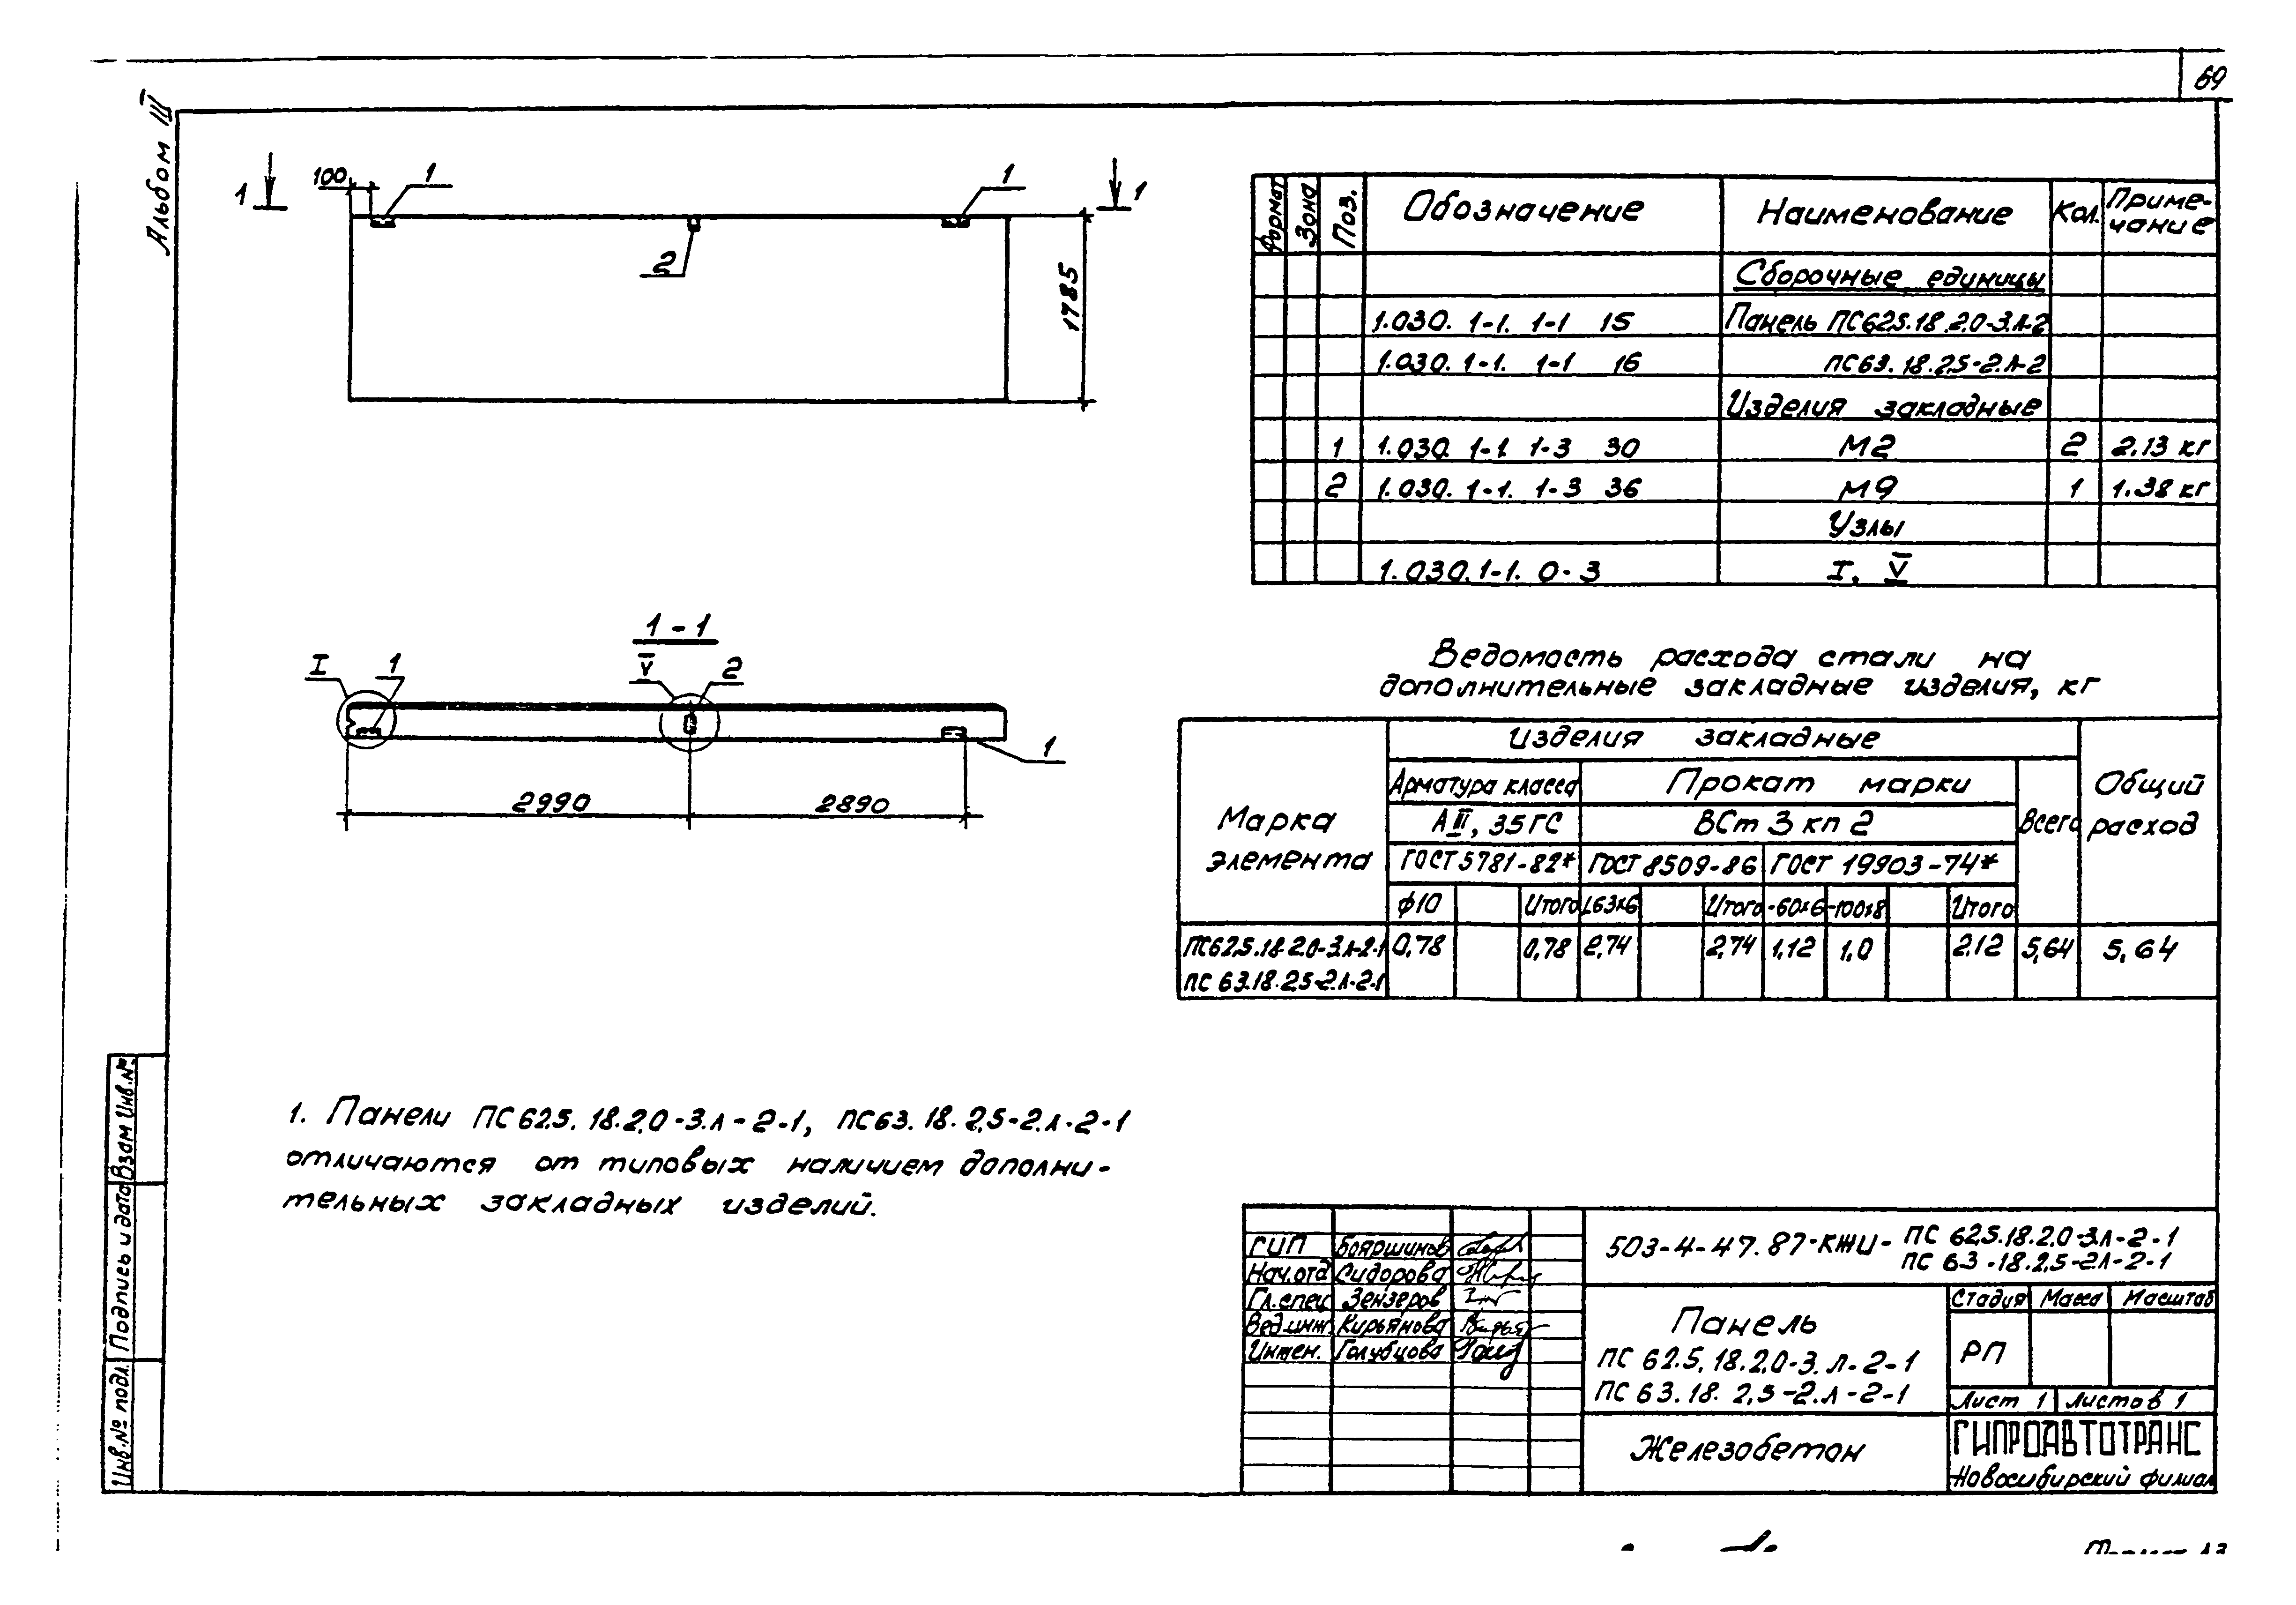 69
Альбом III
1
100
1
1
1
2
1785
1-1
I
1
V
2
1
2990
2890
1. Панели ПС 62.5.18.2.0-3.л-2-1, ПС63.18.2,5-2.л-2-1
отличаются от типовых наличием дополни-
тельных закладных изделий.
Формат Зона Поз. Обозначение Наименование Кол. Приме-
чание
Сборочные единицы
1.030.1-1. 1-1 15 Панель ПС62.5.18.2.0-3.л-2
1.030.1-1. 1-1 16 ПС63.18.2,5-2.л-2
Изделия закладные
1 1.030.1-1. 1-3 30 М2 2 2.13 кг
2 1.030.1-1. 1-3 36 М9 1 1.38 кг
Узлы
1.030.1-1. 0-3 I, V
Ведомость расхода стали на
дополнительные закладные изделия, кг
Марка
элемента
Изделия закладные
Общий
расход
Арматура класса Прокат марки
Всего
А III, 35ГС ВСт 3 кп 2
ГОСТ 5781-82* ГОСТ 8509-86 ГОСТ 19903-74*
ф10 Итого L63х6 Итого -60х6 -100х8 Итого
ПС62,5.18.2.0-3.л-2-1 0,78 0,78 2,74 2,74 1,12 1,0 2.12 5,64 5,64
ПС 63.18.2,5-2.л-2-1
ГИП Бояршинов
Нач.отд Сидорова
Гл.спец Зензеров
Вед.инж. Кирьянова
Инжен. Голубцова
503-4-47.87-КЖИ- ПС 62.5.18.2.0-3.л-2-1
ПС 63.18.2,5-2.л-2-1
Панель
ПС 62.5.18.2.0-3.л-2-1
ПС 63.18.2,5-2.л-2-1
Стадия Масса Масштаб
РП
Лист 1 Листов 1
Железобетон
ГИПРОАВТОТРАНС
Новосибирский филиал
Инв.№ подл. Подпись и дата Взам Инв.№